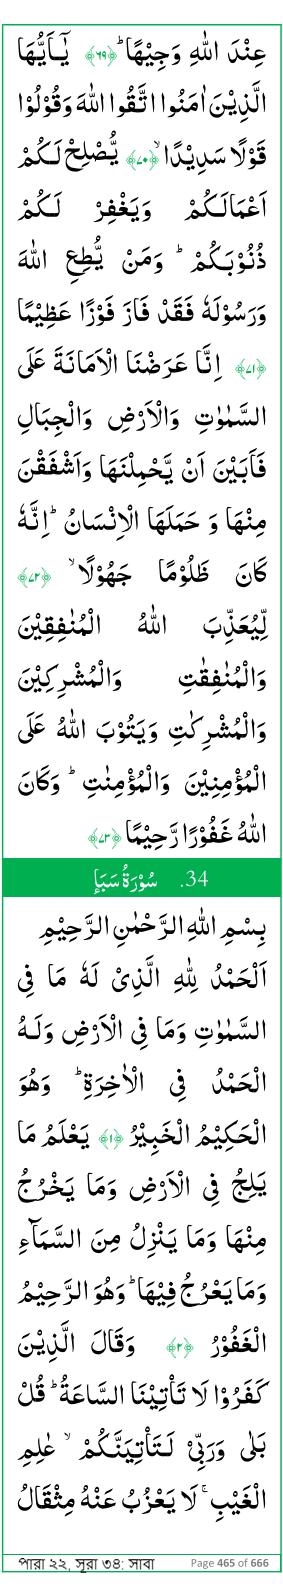 عِنْدَ اللّٰهِ وَجِيْهًا ؕ ﴿۶۹﴾ يٰۤاَيُّهَا
الَّذِيْنَ اٰمَنُوا اتَّقُوا اللّٰهَ وَقُوْلُوْا
قَوْلًا سَدِيْدًا ۙ ﴿۷۰﴾ يُّصْلِحْ لَـكُمْ
اَعْمَالَـكُمْ وَيَغْفِرْ لَـكُمْ
ذُنُوْبَكُمْ ؕ وَمَنْ يُّطِعِ اللّٰهَ
وَرَسُوْلَهٗ فَقَدْ فَازَ فَوْزًا عَظِيْمًا
﴿۷۱﴾ اِنَّا عَرَضْنَا الْاَمَانَةَ عَلَى
السَّمٰوٰتِ وَالْاَرْضِ وَالْجِبَالِ
فَاَبَيْنَ اَنْ يَّحْمِلْنَهَا وَاَشْفَقْنَ
مِنْهَا وَ حَمَلَهَا الْاِنْسَانُ ؕ اِنَّهٗ
كَانَ ظَلُوْمًا جَهُوْلًا ۙ ﴿۷۲﴾
لِّيُعَذِّبَ اللّٰهُ الْمُنٰفِقِيْنَ
وَالْمُنٰفِقٰتِ وَالْمُشْرِكِيْنَ
وَالْمُشْرِكٰتِ وَيَتُوْبَ اللّٰهُ عَلَى
الْمُؤْمِنِيْنَ وَالْمُؤْمِنٰتِ ؕ وَكَانَ
اللّٰهُ غَفُوْرًا رَّحِيْمًا ﴿۷۳﴾
34. سُوْرَةُ سَبَاٍ
بِسْمِ اللّٰهِ الرَّحْمٰنِ الرَّحِيْمِ
اَلْحَمْدُ لِلّٰهِ الَّذِىْ لَهٗ مَا فِى
السَّمٰوٰتِ وَمَا فِى الْاَرْضِ وَلَـهُ
الْحَمْدُ فِى الْاٰخِرَةِ ؕ وَهُوَ
الْحَكِيْمُ الْخَبِيْرُ ﴿۱﴾ يَعْلَمُ مَا
يَلِجُ فِى الْاَرْضِ وَمَا يَخْرُجُ
مِنْهَا وَمَا يَنْزِلُ مِنَ السَّمَآءِ
وَمَا يَعْرُجُ فِيْهَا ؕ وَهُوَ الرَّحِيْمُ
الْغَفُوْرُ ﴿۲﴾ وَقَالَ الَّذِيْنَ
كَفَرُوْا لَا تَاْتِيْنَا السَّاعَةُ ؕ قُلْ
بَلٰى وَرَبِّىْ لَـتَاْتِيَنَّكُمْ ۙ عٰلِمِ
الْغَيْبِ ۚ لَا يَعْزُبُ عَنْهُ مِثْقَالُ
পারা ২২, সূরা ৩৪: সাবা Page 465 of 666